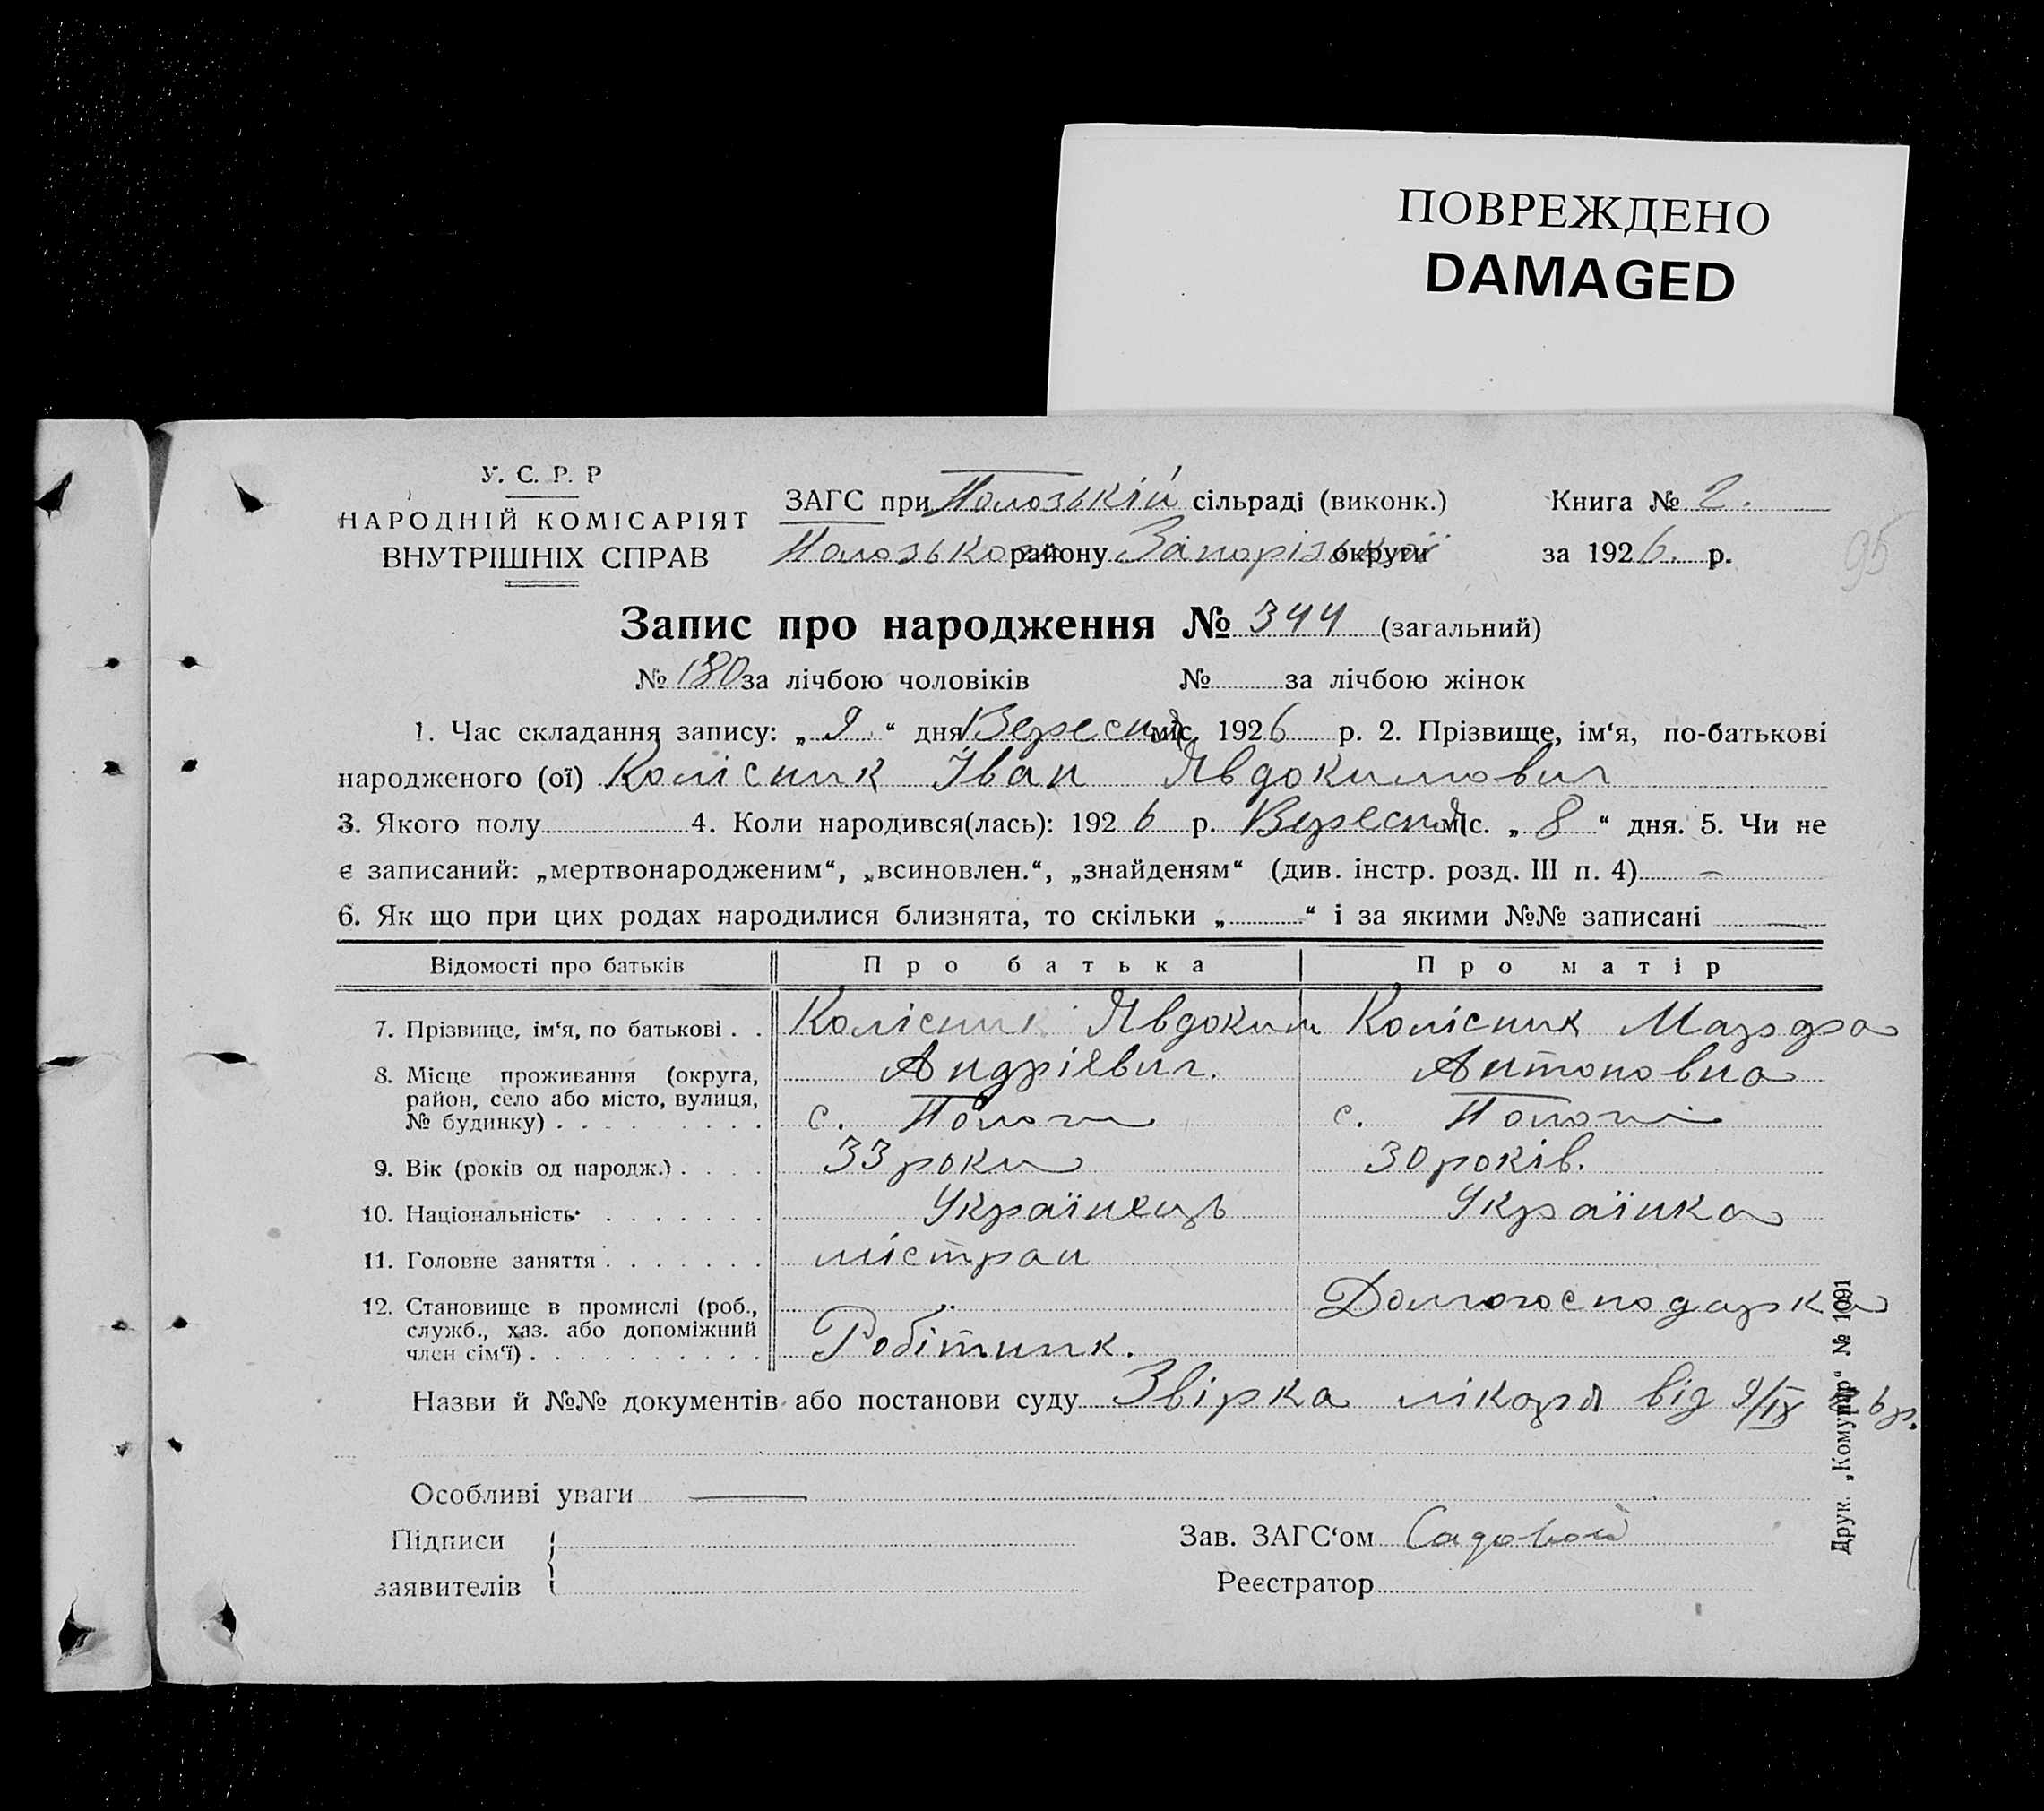 ПОВРЕЖДЕНО
DAMAGED
У. С. Р. Р
НАРОДНІЙ КОМІСАРІЯТ
ВНУТРІШНІХ СПРАВ
ЗАГС при Положській сільраді (виконк.) Книга № 2.
району Запорізької округи за 1926. р.
95
Запис про народження № 344 (загальний)
№ 180 за лічбою чоловіків № за лічбою жінок
1. Час складання запису: „ 9 “ дня Вересня міс. 1926 р. 2. Прізвище, ім‘я, по-батькові
народженого (ої) Колісник Іван Явдокимович
3. Якого полу 4. Коли народився(лась): 1926 р. Вересня міс. „ 8 “ дня. 5. Чи не
є записаний: „мертвонародженим“, „всиновлен.“, „знайденям“ (див. інстр. розд. III п. 4) —
6. Як що при цих родах народилися близнята, то скільки „ “ і за якими №№ записані —
Відомості про батьків Про батька Про матір
7. Прізвище, ім‘я, по батькові . . Колісник Явдоким Колісник Марфа
Андрієвич. Антоновна
8. Місце проживання (округа,
район, село або місто, вулиця,
№ будинку) . . . . . . . . . с. Пологи с. Пологи
9. Вік (років од народж.) . . . . 33 роки 30 років.
10. Національність . . . . . . . Українець Українка
11. Головне заняття . . . . . . .
12. Становище в промислі (роб.,
служб., хаз. або допоміжний
член сім‘ї) . . . . . . . . . . Робітник. Домогосподарка
Назви й №№ документів або постанови суду Звірка лікаря від 9/IX 26 р.
Особливі уваги —
Підписи
заявителів
Зав. ЗАГС‘ом Садовой
Реєстратор
Друк. „Комунар“ № 1091